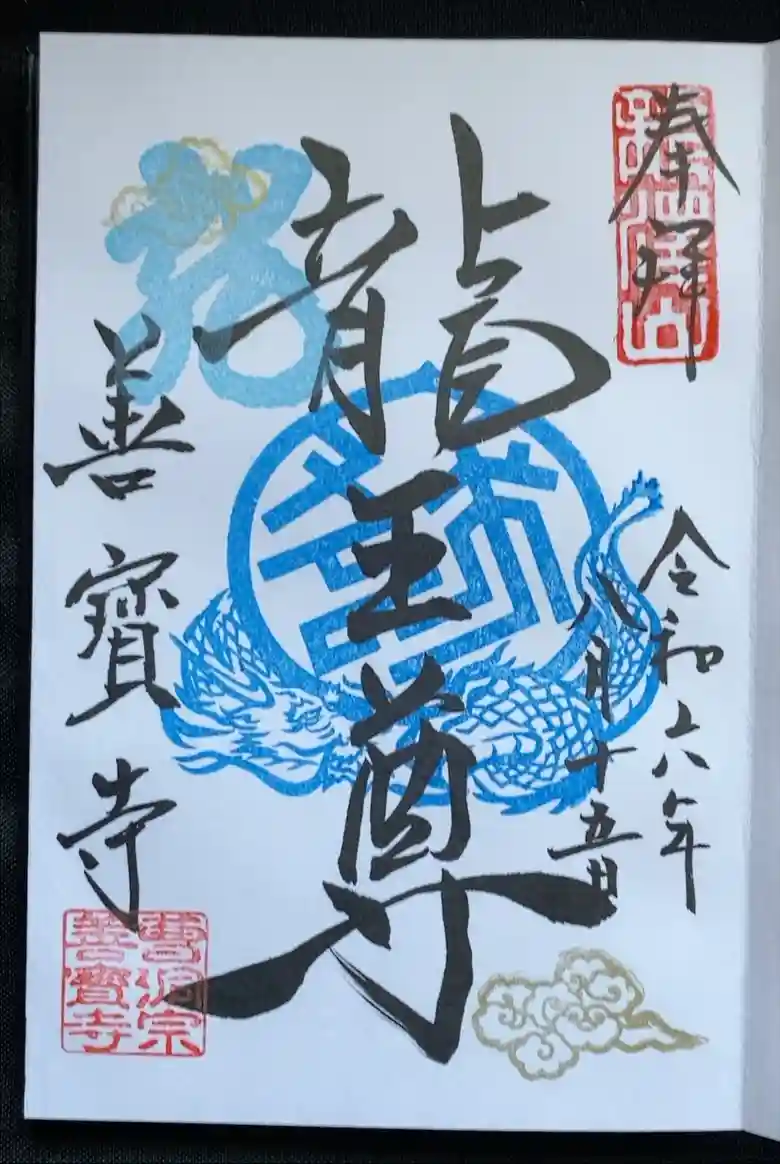 奉拝
令和六年
八月十五日
龍王尊
善寳寺
曹洞宗
善寳寺